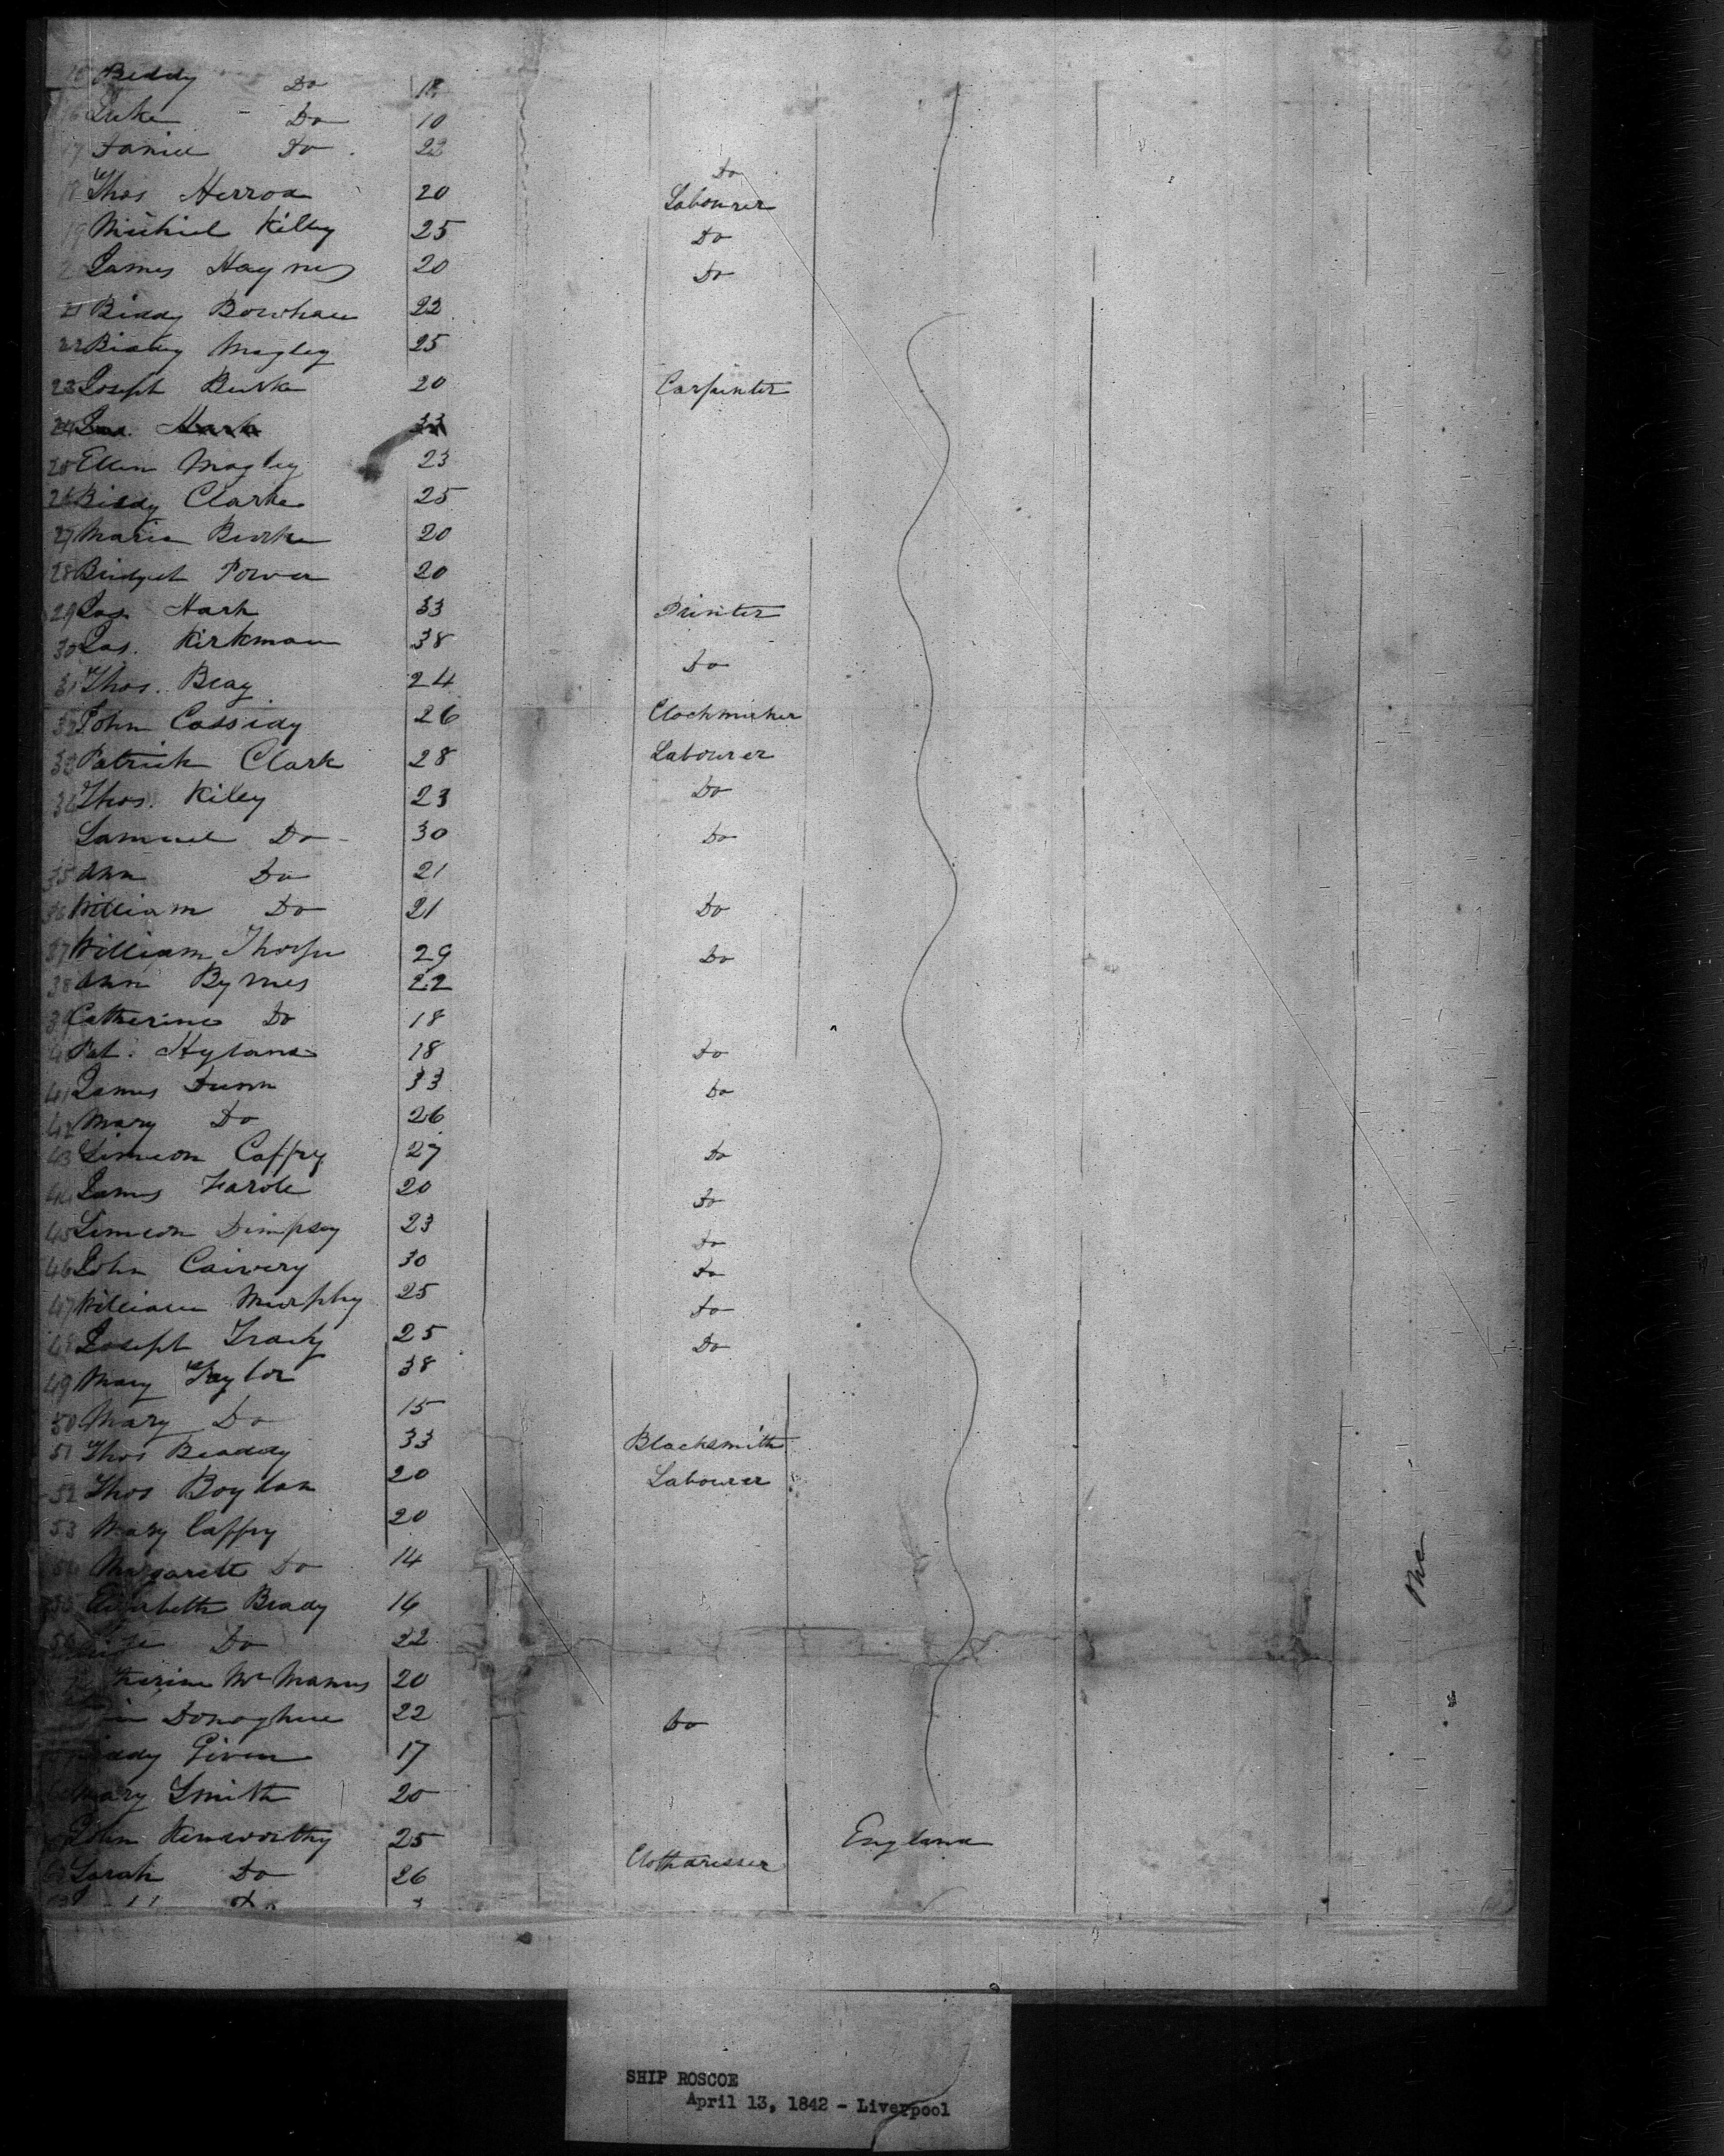 15 Biddy Do 18
16 Luke Do 10
17 Daniel Do 22 Do
18 Thos Herrod 20 Labourer
19 Michiel Kilby 25 Do
James Haynes 20 Do
21 Biddy 22
22 Biddy Magley 25
23 Joseph Burke 20 Carpinter
24 Jas. Hark 33
25 Ellen Magley 23
26 Biddy Clarke 25
27 Maria Burke 20
28 Bridget Power 20
29 Jas Hark 33 Printer
30 Jas. Kirkman 38 Do
31 Thos. Bray 24
32 John Cassidy 26 Clockmaker
33 Patrick Clark 28 Labourer
34 Thos. Kiley 23 Do
Samuel Do 30 Do
35 Ann Do 21
36 William Do 21 Do
37 William Thorpe 29 Do
38 Ann Byrnes 22
39 Catherine Do 18
40 Pat. Hyland 18 Do
41 James Dunn 33 Do
42 Mary Do 26
43 Simeon Caffry 27 Do
44 James 20 Do
45 Simeon Dimpsey 23 Do
46 John 30 Do
47 William Murphy 25 Do
48 Joseph Tracky 25 Do
49 Mary Taylor 38
50 Mary Do 15
51 Thos Beaddy 33 Blacksmith
52 Thos Boylan 20 Labourer
53 Mary Caffry 20
54 Margarett Do 14
55 Elizabeth Brady 16
56 Do 22
McManus 20
Donoghue 22 Do
Given 17
Mary Smith 20
John Kenworthy 25 Clothdresser England
62 Sarah Do 26
Do
SHIP ROSCOE
April 13, 1842 - Liverpool